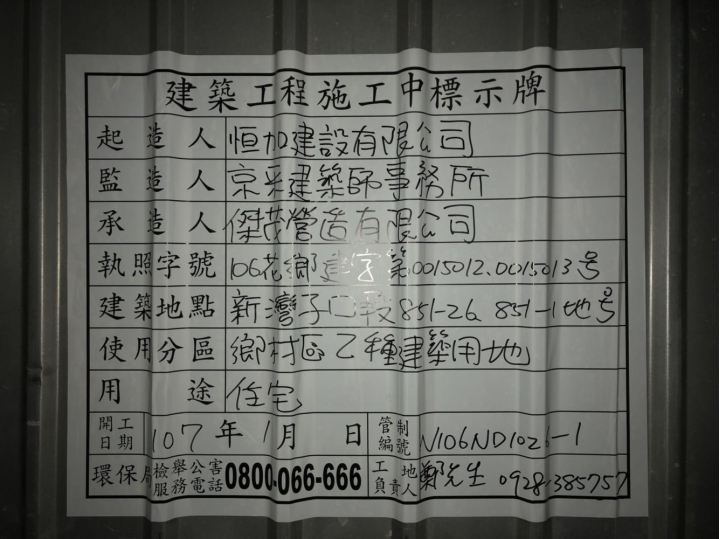 建築工程施工中標示牌
起造人 恒加建設有限公司
監造人 京采建築師事務所
承造人 傑茂營造有限公司
執照字號 106花鄉建字第0015012.0015013号
建築地點 新灣子口段851-26、851-1地号
使用分區 鄉村區乙種建築用地
用途 住宅
開工日期 107年1月 日 管制編號 N106ND1026-1
環保局檢舉公害服務電話 0800-066-666 工地負責人 鄭先生 0928-385757